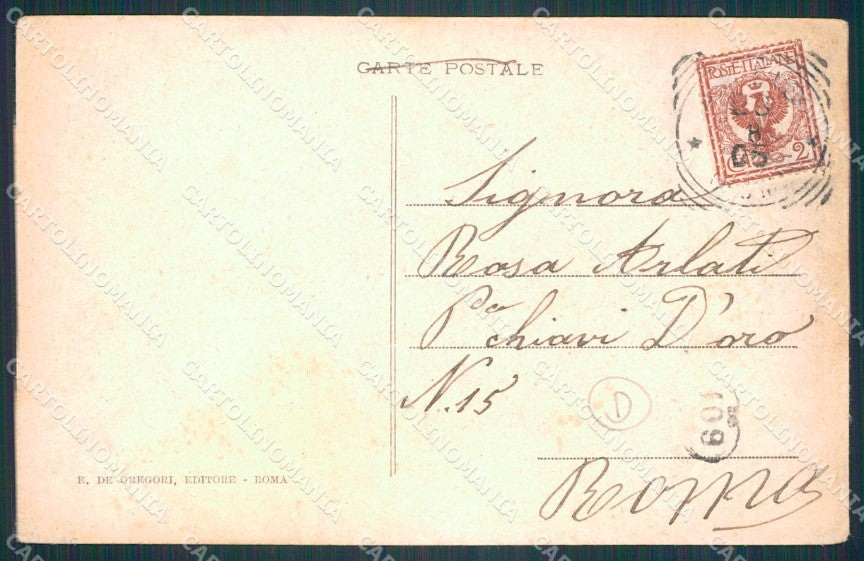 CARTE POSTALE
POSTE ITALIANE
2
Signora
Rosa Arlati
Pa chiavi D'oro
N. 15
D
109
Roma
E. DE GREGORI, EDITORE - ROMA
CARTOLINOMANIA